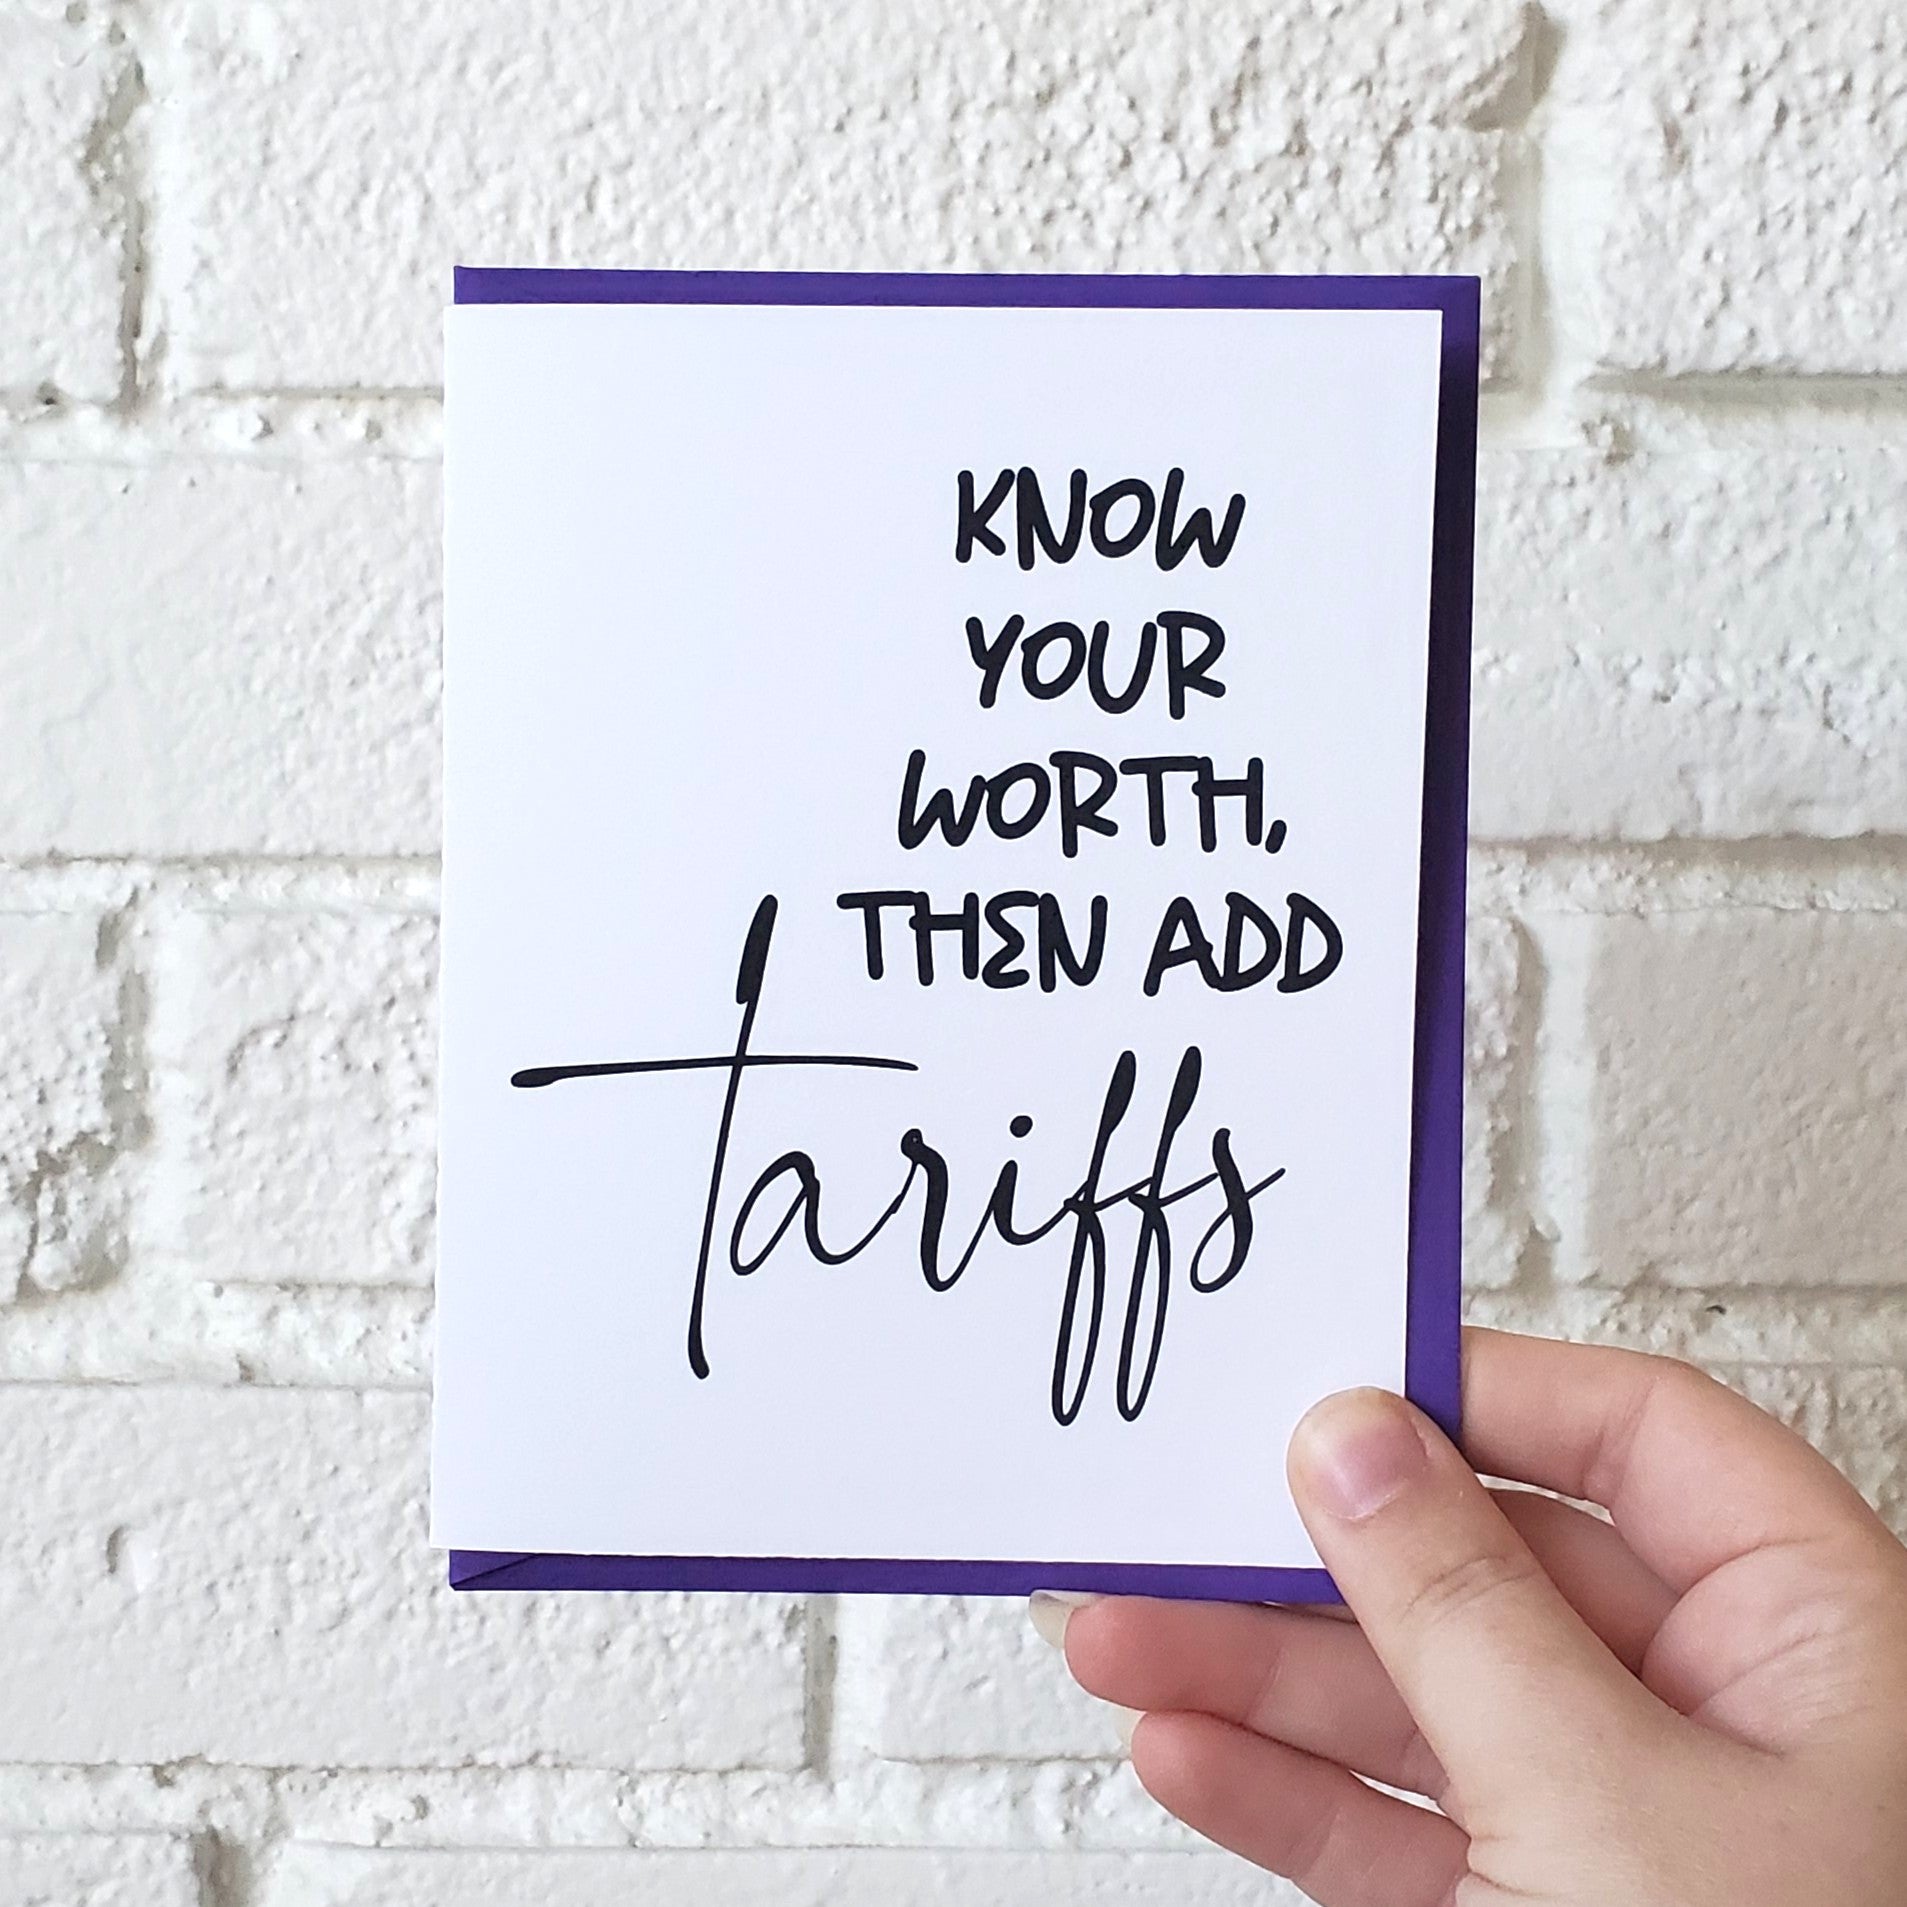 KNOW
YOUR
WORTH,
THEN ADD
Tariffs